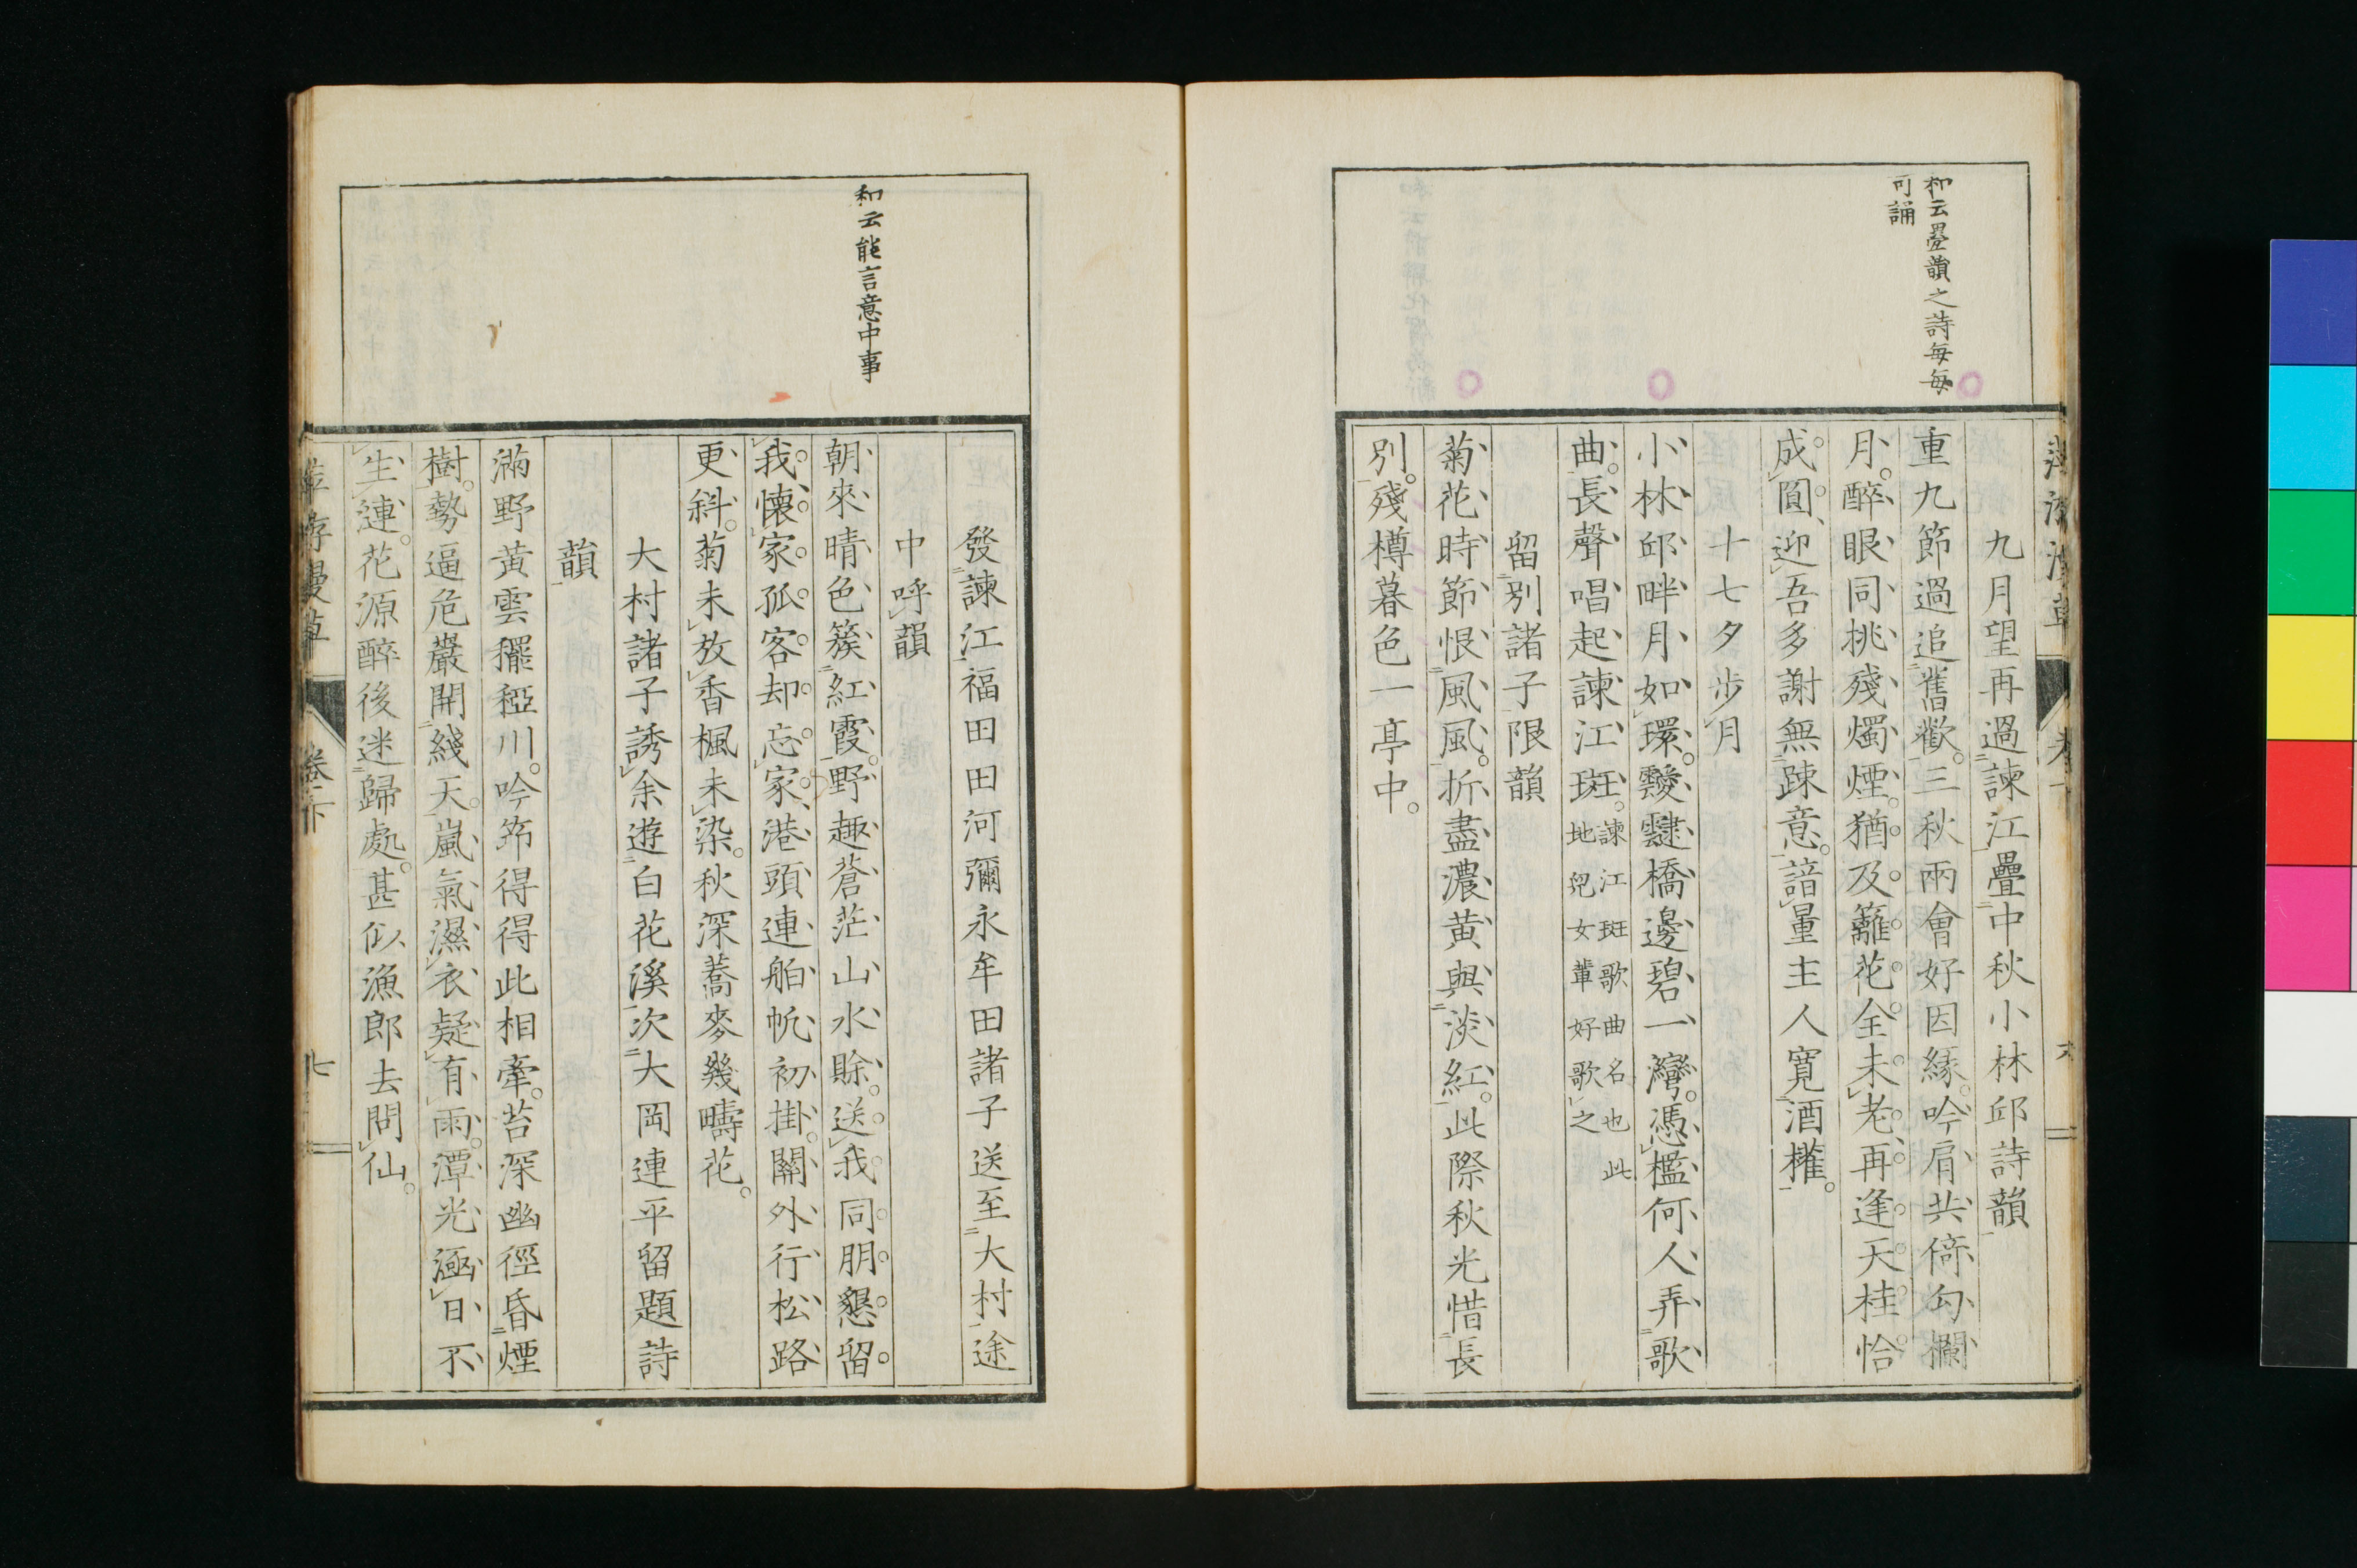 和云疊韻之詩每每
可誦
九月望再過諫江疊中秋小林邱詩韻
重九節過追舊歡。三秋兩會好因緣。吟肩共倚勾欄
月。醉眼同挑殘燭煙。猶及籬花全未老。再逢天桂恰
成圓。迎吾多謝無疎意。諳量主人寬酒權。
十七夕步月
小林邱畔月如環。靉靆橋邊碧一灣。憑檻何人弄歌
曲。長聲唱起諫江斑。諫江斑歌曲名也此
地兒女輩好歌之
留別諸子限韻
菊花時節恨風風。折盡濃黄與淡紅。此際秋光惜長
別。殘樽暮色一亭中。
和云能言意中事
發諫江福田田河彌永牟田諸子送至大村途
中呼韻
朝來晴色簇紅霞。野趣蒼茫山水賒。送我同朋懇留
我。懷家孤客却忘家。港頭連舶帆初掛。關外行松路
更斜。菊未放香楓未染。秋深蕎麥幾疇花。
大村諸子誘余遊白花溪次大岡連平留題詩
韻
滿野黄雲䆉稏川。吟筇得得此相牽。苔深幽徑昏煙
樹。勢逼危巖開綫天。嵐氣濕衣疑有雨。潭光涵日不
生漣。花源醉後迷歸處。甚似漁郎去問仙。
萍游漫草 卷下 七